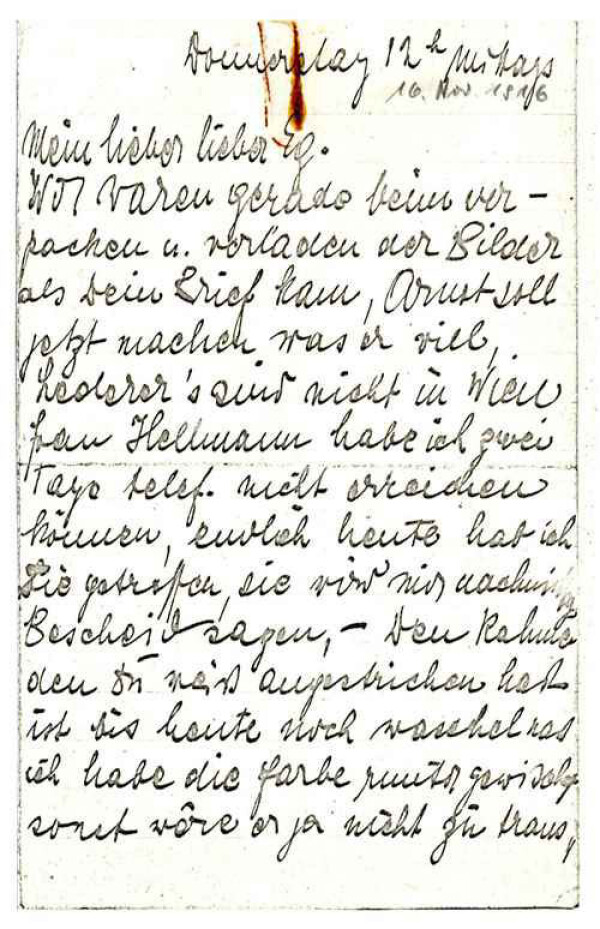 Donnerstag 12h Mitags
16. Nov. 1916
Mein lieber lieber Eg.
Wir waren gerade beim ver-
packen u. verladen der Bilder
als Dein Brief kam, Arnot soll
jetzt machen was er will,
Lederer's sind nicht in Wien
frau Hellmann habe ich zwei
Tage telef. nicht erreichen
können, endlich heute hab ich
Sie getroffen, sie wird mir nachmittag
Bescheid sagen, – Den Rahmen
den Du weiß angestrichen hast
ist bis heute noch waschelnas
ich habe die farbe runter gewischt
sonst wäre er ja nicht zu trans,